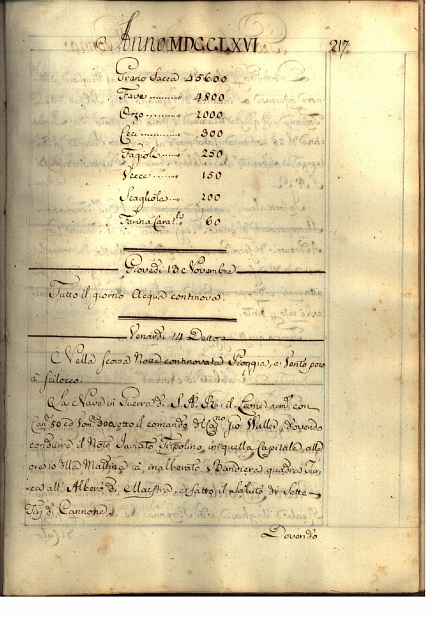 Anno MDCCLXVI 217
Grano Sacca 45600
Fave 4800
Orzo 2000
Ceci 300
Fagioli 250
Vecce 150
Scagliola 200
Farina 60
Giovedi 13 Novembre
Tutto il giorno Acqua continova.
Venardi 14 Detto
Nella scorsa Notte continovata Pioggia, e Vento poco
a scilocco.
La Nave in Guerra di S. A. R. il Leone arm. con
Can. 50 ed 300 sotto il comando del Gio Waller, dovendo
condurre il Noto Inviato in quella Capitale, alle
ore 10 della Mattina à inalberato Bandiera quadra Tur-
ca all' Albero di Maestra, e fatto il saluto di Sette
Tiri di Cannone.
Dovendo